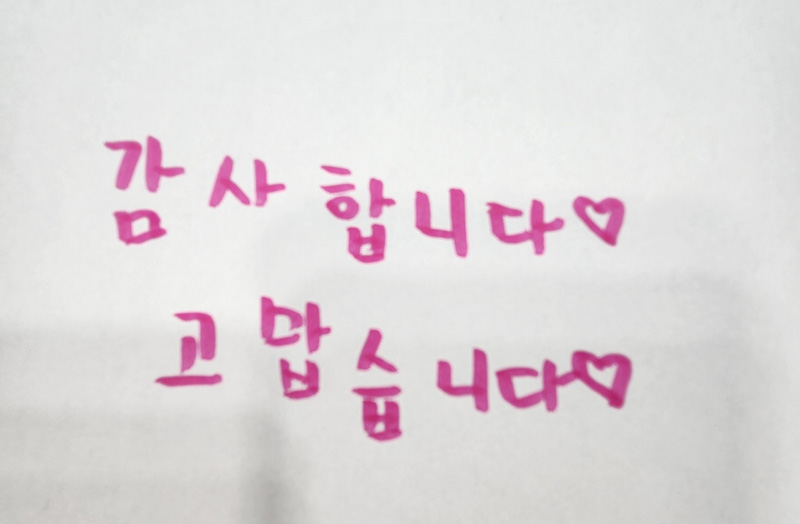 감사합니다♡
고맙습니다♡